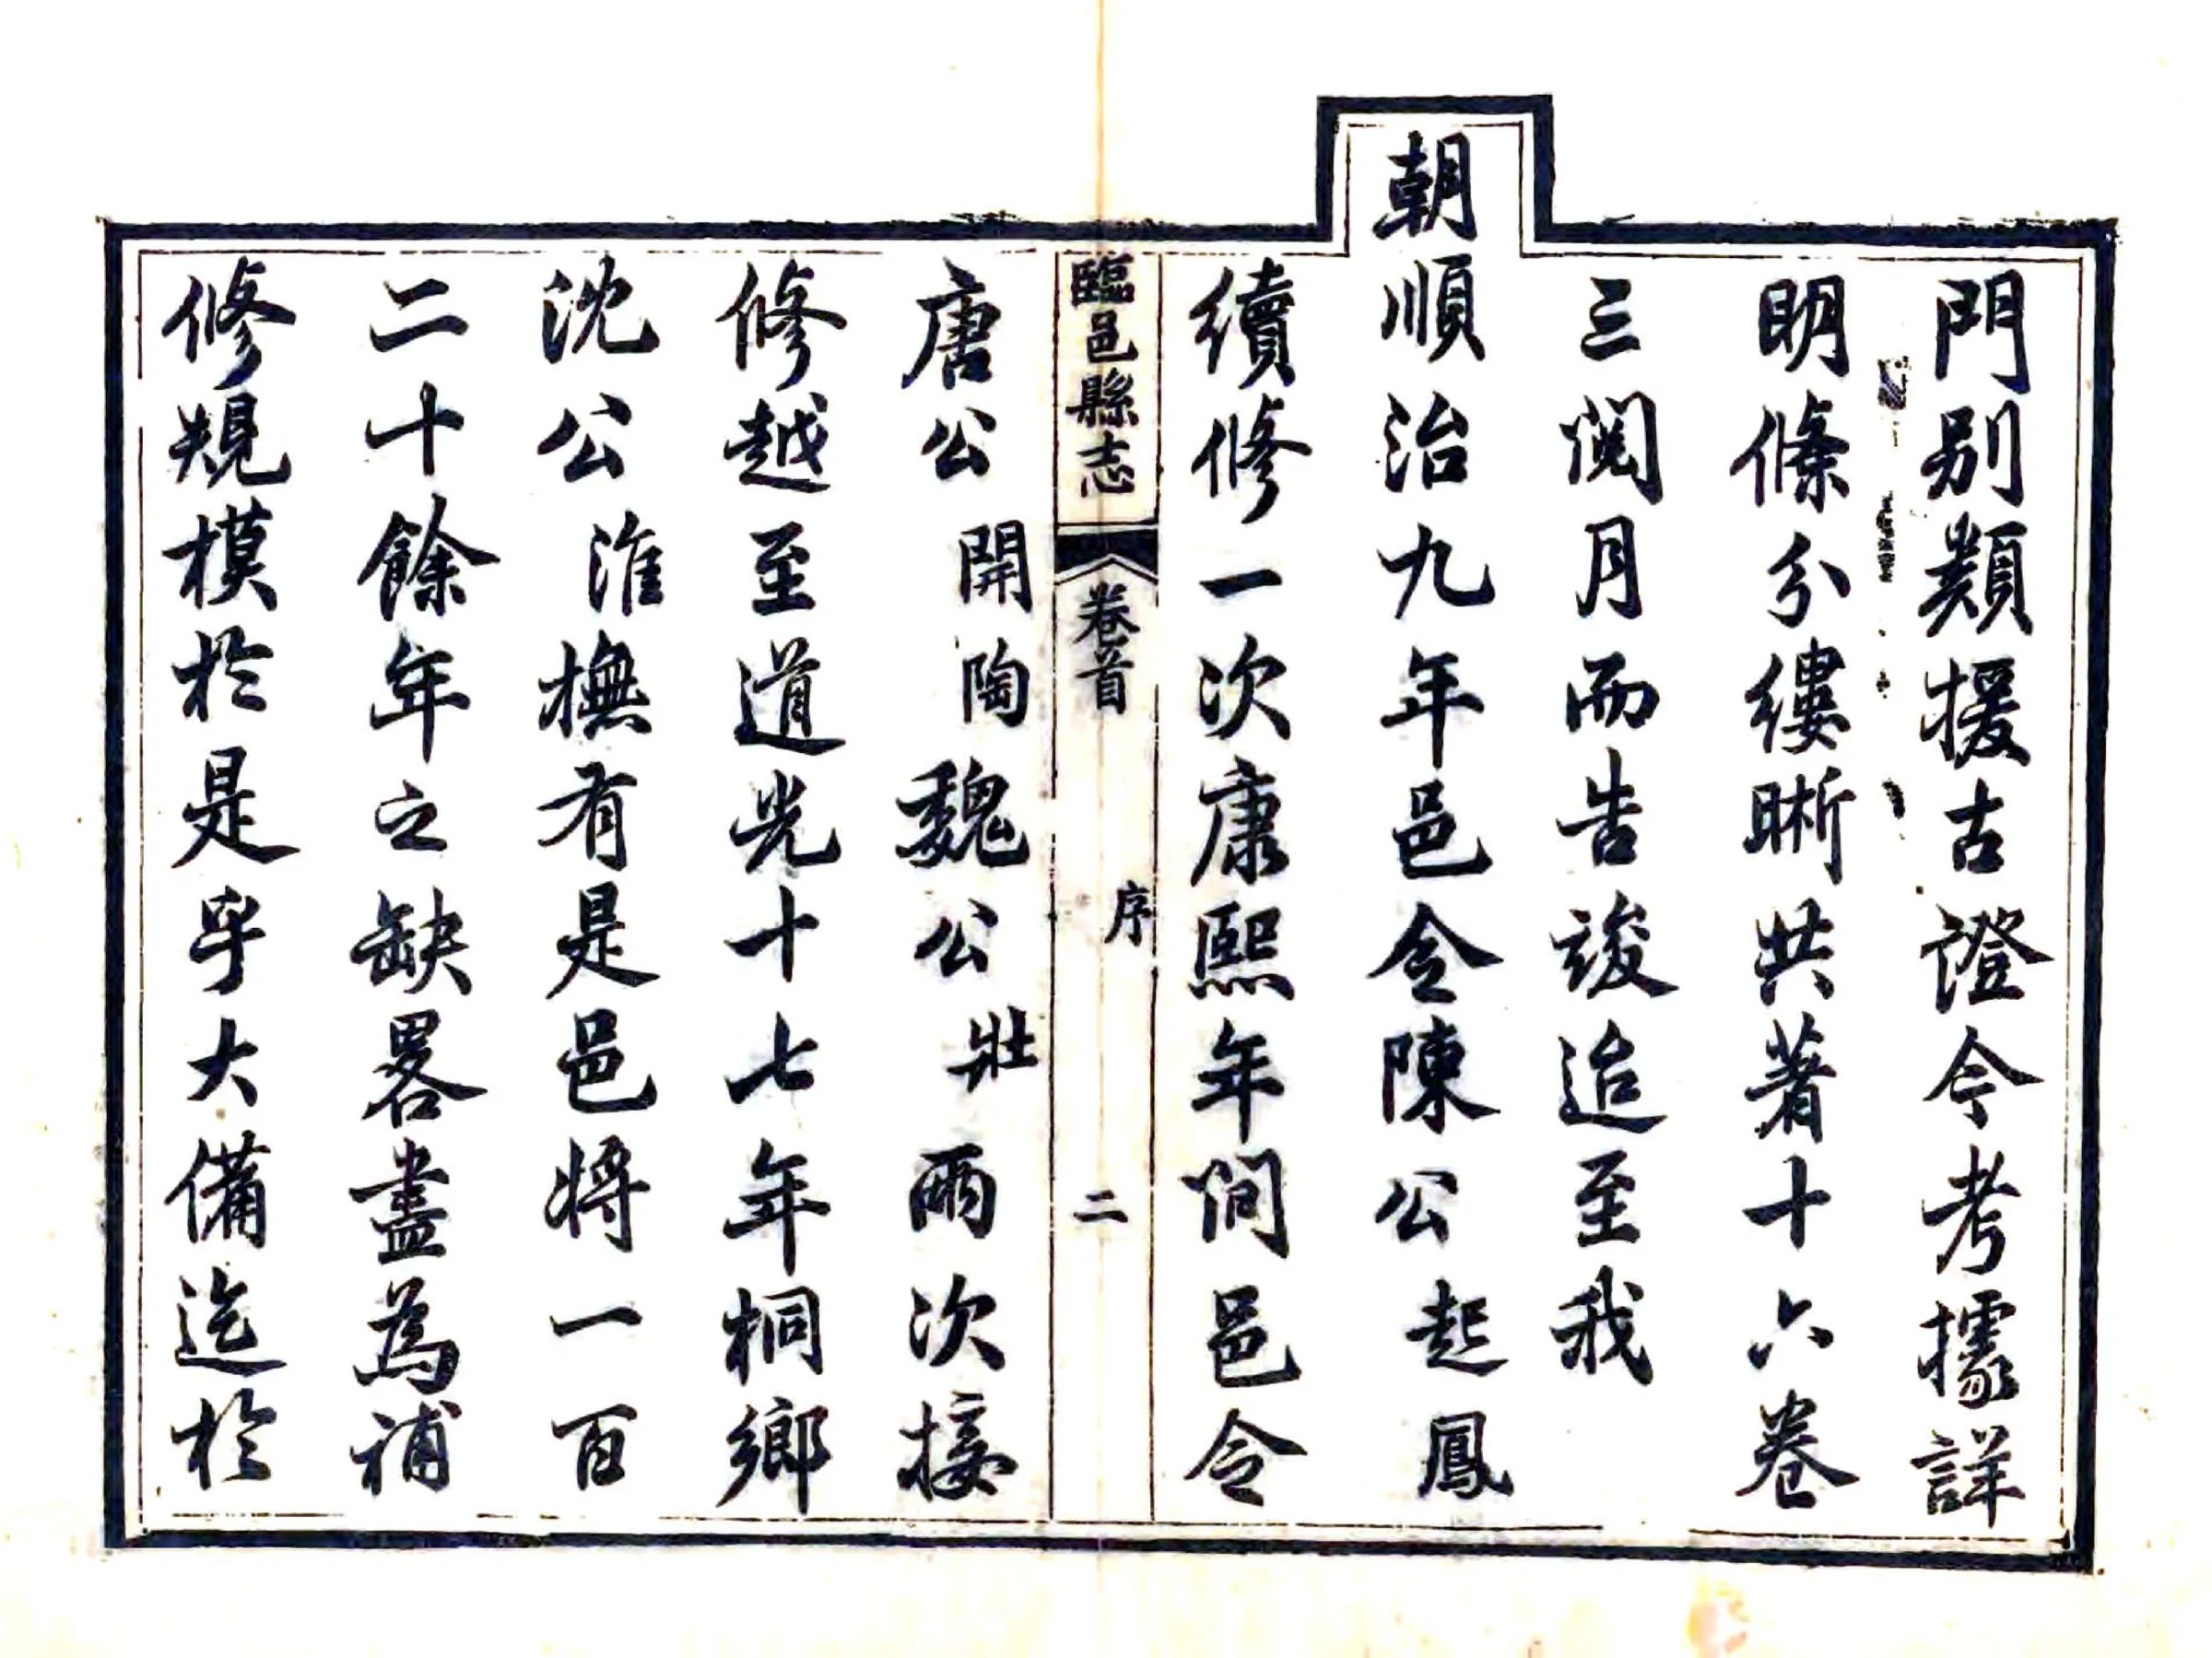 門别類援古證今考據詳
明條分縷晰共著十六卷
三閱月而告竣迨至我
朝順治九年邑令陳公起鳳
續修一次康熙年間邑令
臨邑縣志 卷首 序 二
唐公開陶魏公壯兩次接
修越至道光十七年桐鄉
沈公淮撫有是邑將一百
二十餘年之缺畧盡為補
修規模於是乎大備迄於